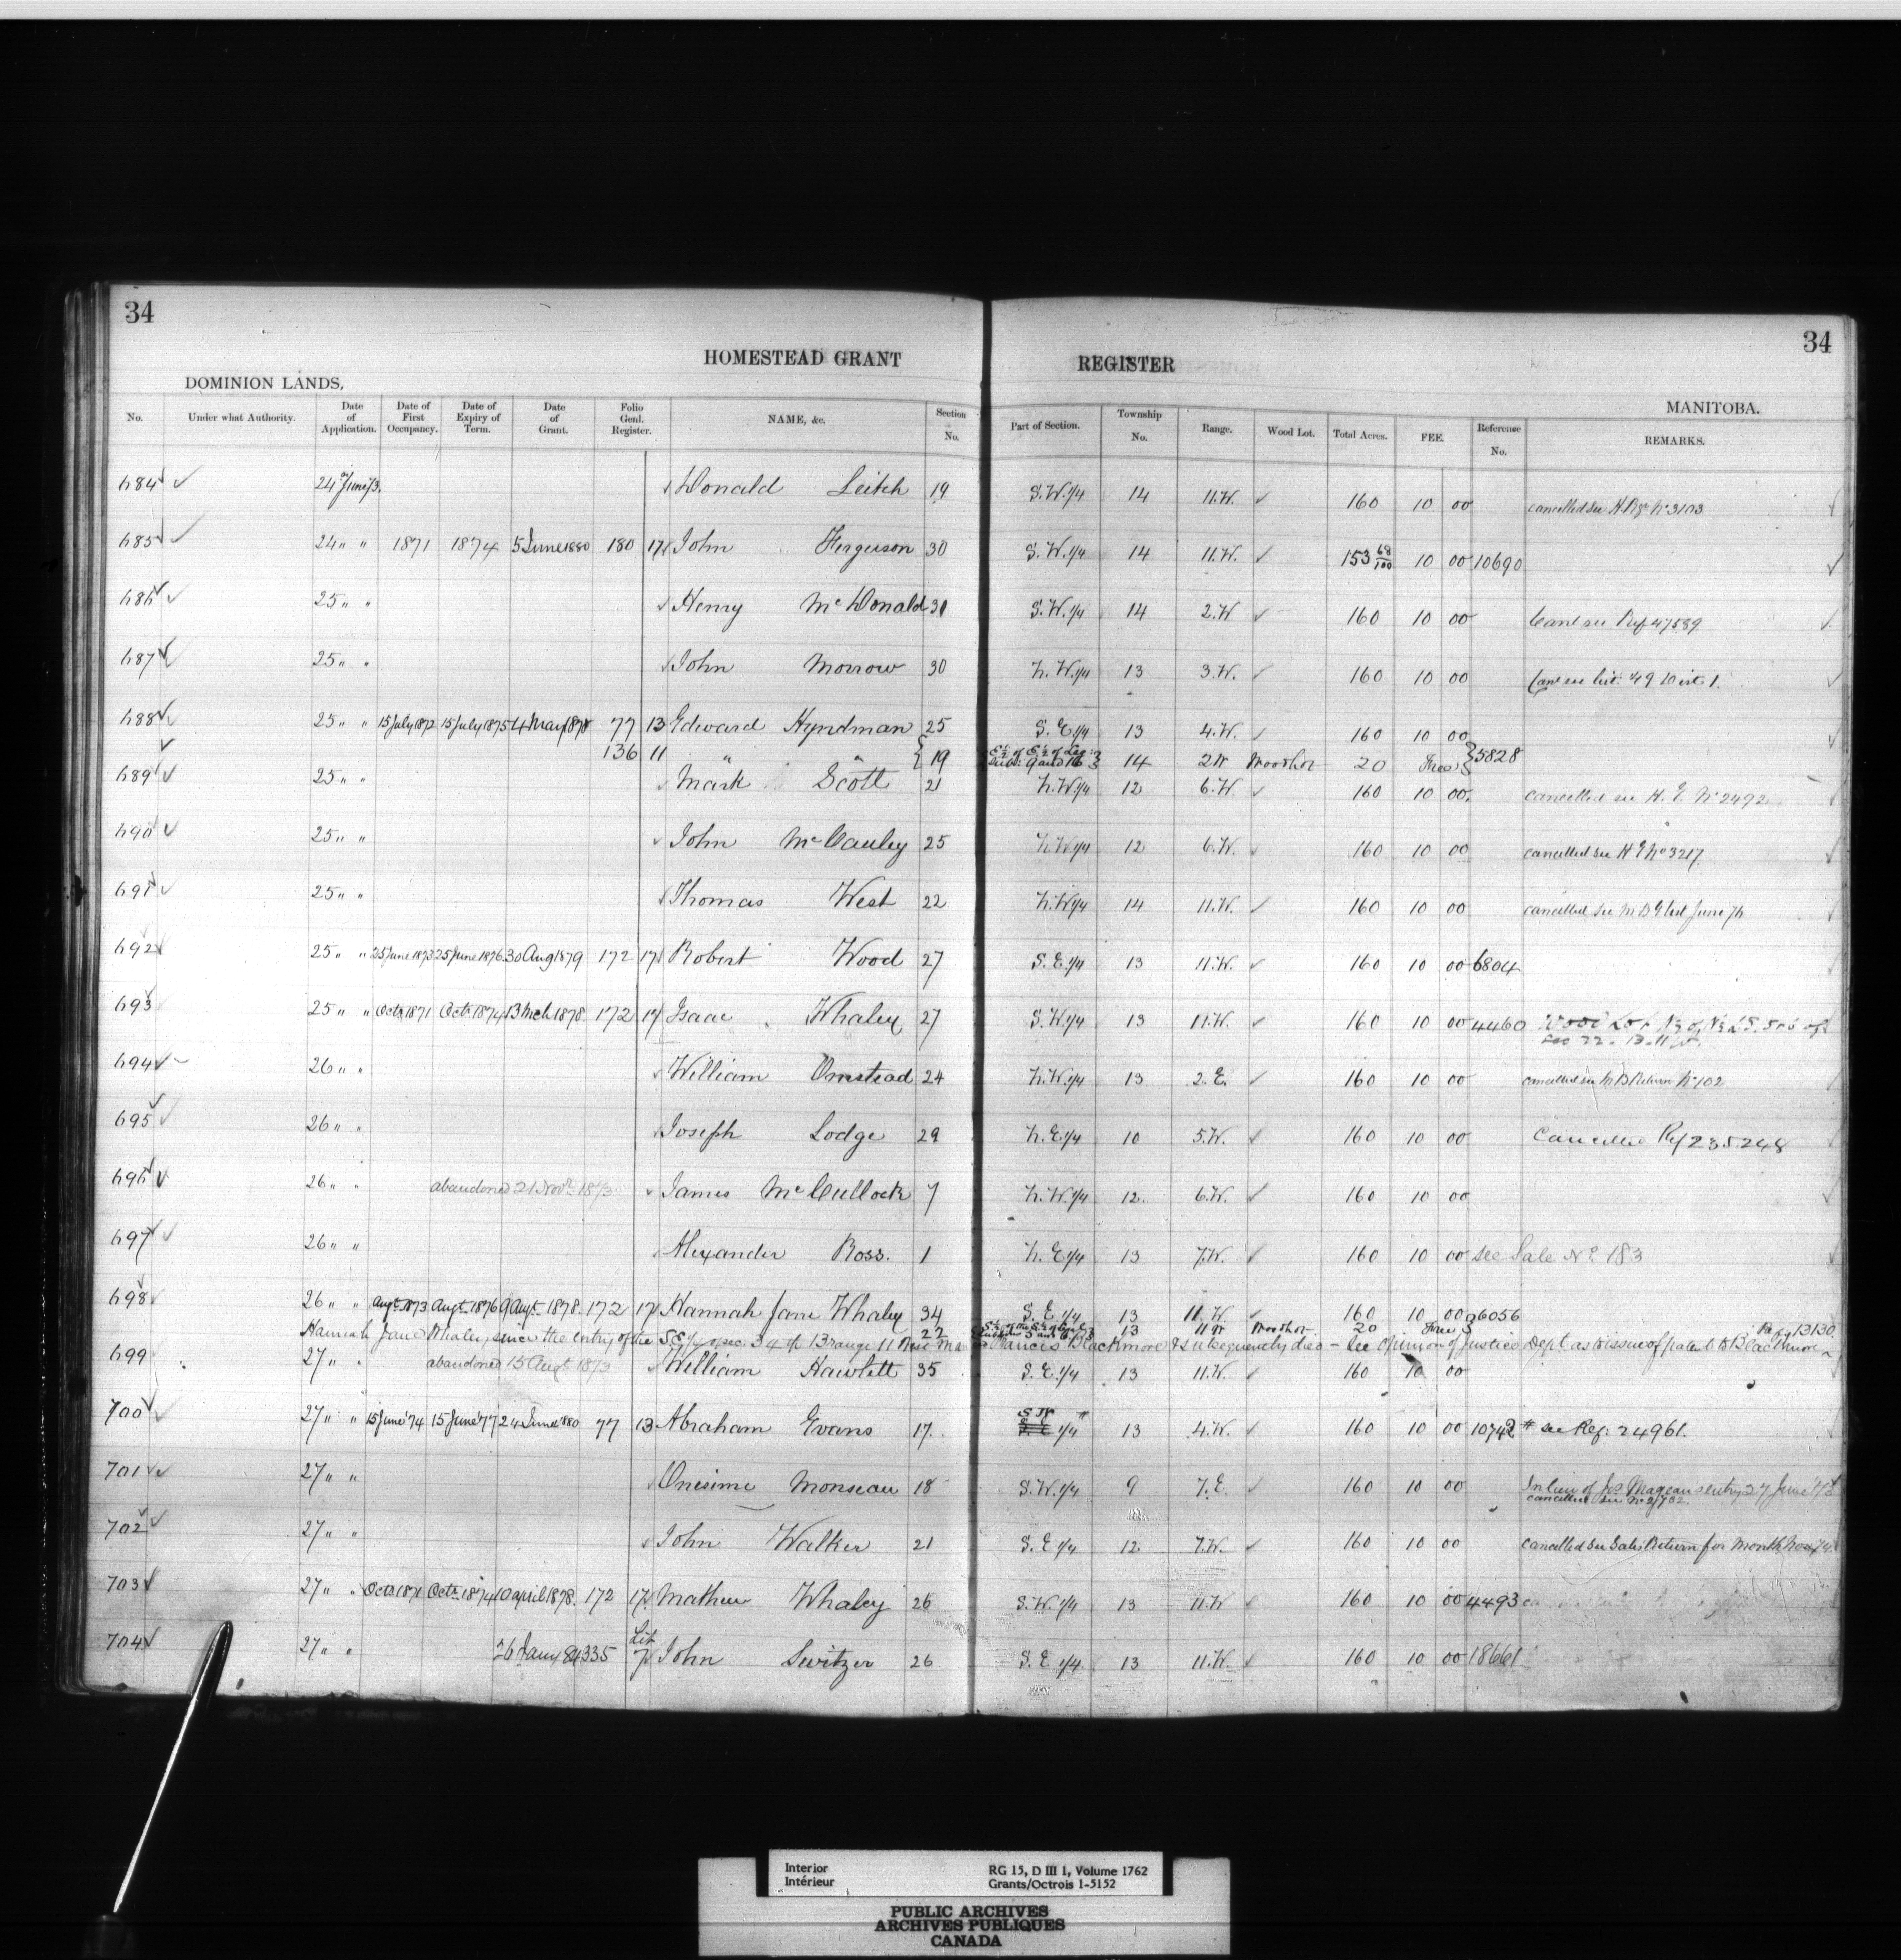 34
34
HOMESTEAD GRANT REGISTER
DOMINION LANDS,
MANITOBA.
No. Under what Authority. Date of Application. Date of First Occupancy. Date of Expiry of Term. Date of Grant. Folio Genl. Register. NAME, &c. Section No. Part of Section. Township No. Range. Wood Lot. Total Acres. FEE. Reference No. REMARKS.
684 24 June 73. Donald Leitch 19 S.W.1/4 14 11.W. 160 10 00 cancelled see H Rgr No 3103
685 24 " " 1871 1874 5 June 1880 180 17 John Ferguson 30 S.W.1/4 14 11.W. 153 68/100 10 00 10690
686 25 " " Henry McDonald 31 S.W.1/4 14 2.W 160 10 00 Canl see Ref 47589
687 25 " " John Morrow 30 N.W.1/4 13 3.W. 160 10 00 Canl see List 49 Dist 1.
688 25 " " 15 July 1872 15 July 1875 4 May 1878 77 13 Edward Hyndman 25 S.E.1/4 13 4.W. 160 10 00
136 11 " " 19 E½ of E½ of Leg: Subn: 9 and 16 14 2W Woodlot 20 Free 5828
689 25 " " Mark Scott 21 N.W.1/4 12 6.W. 160 10 00. cancelled see H. G. No 2492
690 25 " " John McCauley 25 N.W.1/4 12 6.W. 160 10 00 cancelled see H G No 3217
691 25 " " Thomas West 22 N.W.1/4 14 11.W. 160 10 00 cancelled see M B G list June 76
692 25 " " 25 June 1873 25 June 1876 30 Aug 1879 172 17 Robert Wood 27 S.E.1/4 13 11.W. 160 10 00 6804
693 25 " " Octr. 1871 Octr. 1874 13 Mch 1878 172 17 Isaac Whaley 27 S.W.1/4 13 11.W. 160 10 00 4460 Wood Lot N½ of N½ LS. 5 & 6 of
sec 22. 13. 11 W.
694 26 " " William Omstead 24 N.W.1/4 13 2.E. 160 10 00 cancelled see M B Return No 102
695 26 " " Joseph Lodge 29 N.E.1/4 10 5.W. 160 10 00 Cancelled Ref 235.248
696 26 " " abandoned 21 Novr 1873 James McCullock 7 N.W.1/4 12. 6.W. 160 10 00
697 26 " " Alexander Ross. 1 N.E.1/4 13 7.W. 160 10 00 see Sale No. 183
698 26 " " Augt. 1873 Augt. 1876 9 Augt. 1878. 172 17 Hannah Jane Whaley 34 S.E.1/4 13 11.W. 160 10 00 6056
22 13 11 W Woodlot 20 Free Ref 13130.
Hannah Jane Whaley, since the entry of the S.E. 1/4 of sec. 34 tp 13 range 11 Francis Blackmore & subsequently died - See Opinion of Justice Dept as to issue of patent to Blackmore
699 27 " " abandoned 15 Augt 1873 William Hawlett 35 S.E.1/4 13 11.W. 160 10 00
700 27 " " 15 June '74 15 June '77 24 June 1880 77 13 Abraham Evans 17. SW 1/4 # 13 4.W. 160 10 00 10742 # see Ref: 24961.
701 27 " " Onesime Monseau 18 S.W.1/4 9 7.E. 160 10 00 In lieu of Jos Magean's entry 27 June '73
cancelled see No 2/732
702 27 " " John Walker 21 S.E.1/4 12 7.W. 160 10 00 cancelled see Sales Return for Month Nov 74.
703 27 " " Octr. 1871 Octr. 1874 10 April 1878. 172 17 Mathew Whaley 26 S.W.1/4 13 11.W 160 10 00 4493
704 27 " " 26 Jany 84 335 Lib 7 John Switzer 26 S.E 1/4 13 11.W. 160 10 00 18661
Interior RG 15, D III 1, Volume 1762
Intérieur Grants/Octrois 1-5152
PUBLIC ARCHIVES
ARCHIVES PUBLIQUES
CANADA